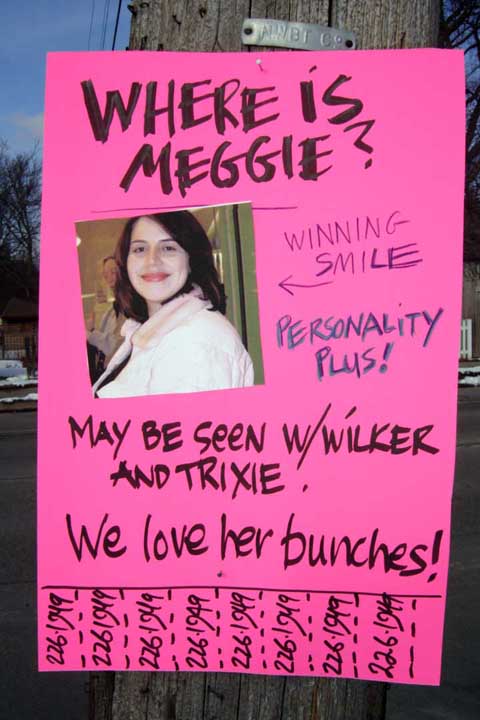 WHERE IS
MEGGIE?
WINNING
SMILE
PERSONALITY
PLUS!
MAY BE SEEN W/WILKER
AND TRIXIE.
We love her bunches!
226.1949 226.1949 226.1949 226.1949 226.1949 226.1949 226.1949 226.1949